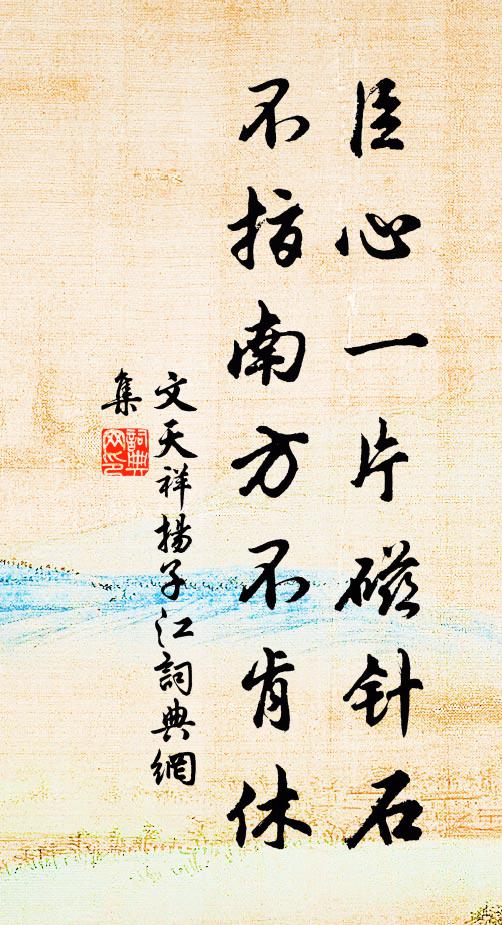 臣心一片磁针石
不指南方不肯休
文天祥揚子江詞典網
集
詞典网印